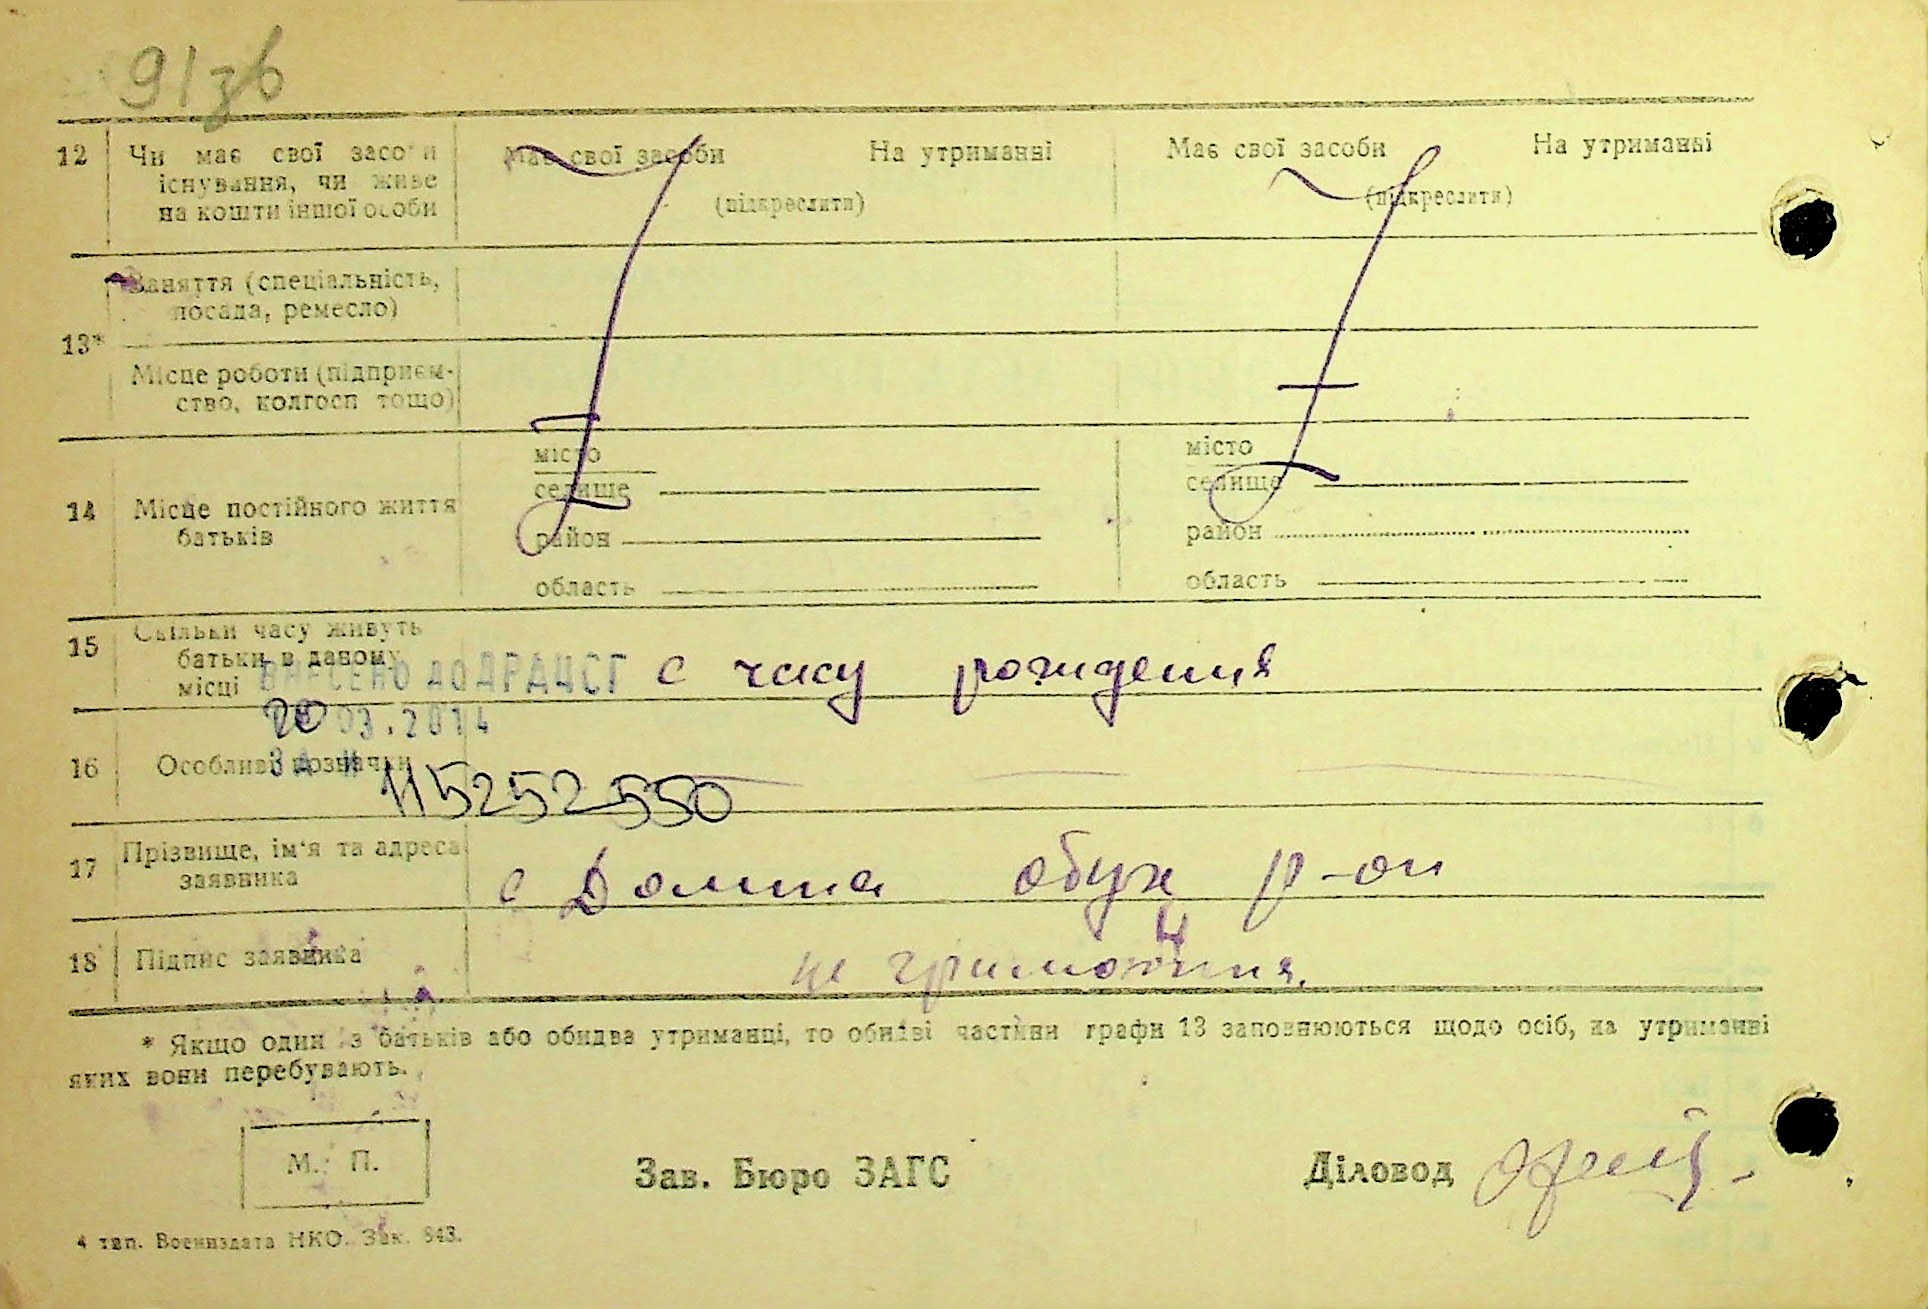 91зв
12 Чи має свої засоби Має свої засоби На утриманні Має свої засоби На утриманні
існування, чи живе
на кошти іншої особи (підкреслити) (підкреслити)
Заняття (спеціальність,
посада, ремесло)
13*
Місце роботи (підприєм-
ство, колгосп тощо)
місто місто
селище селище
14 Місце постійного життя
батьків район район
область область
15 Скільки часу живуть
батьки в даному
місці с часу рождения
ВНЕСЕНО ДО ДРАЦСГ
20 03.2014
16 Особливі позначки
ЗА №
115252550
17 Прізвище, ім'я та адреса
заявника с Долина обух р-он
18 Підпис заявника
* Якщо один з батьків або обидва утриманці, то обидві частини графи 13 заповнюються щодо осіб, на утриманні
яких вони перебувають.
М. П. Зав. Бюро ЗАГС Діловод
4 тип. Воениздата НКО. Зак. 843.